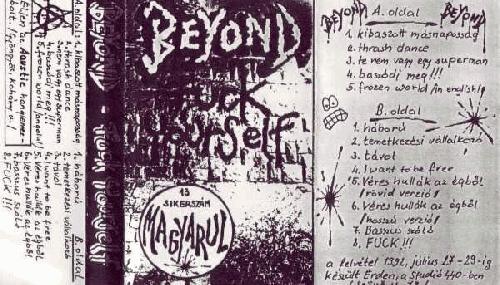 A. oldal:
1. kibaszott másnaposság
2. thrash dance
3. te nem vagy egy superman
4. basódj meg !!!
5. frozen world
B. oldal
1. háború
2. temetkezési vállalkozó
3. távol
4. I want to be free
5. Véres hullák az égből
6. Véres hullák az égből
8. FUCK !!!
BEYOND
BEYOND
Fuck
Yourself
13
SIKERSZÁM
MAGYARUL
BEYOND A. oldal BEYOND
1. kibaszott másnaposság
2. thrash dance
3. te nem vagy egy superman
4. basódj meg !!!
5. frozen world /in english/
B. oldal
1. háború
2. temetkezési vállalkozó
3. távol
4. I want to be free
5. Véres hullák az égből
/rövid verzió/
6. Véres hullák az égből
/hosszú verzió/
7. basszus szóló
8. FUCK !!!
a felvétel 1992, július 27-29-ig
készült Érden, a Studió 440-ben